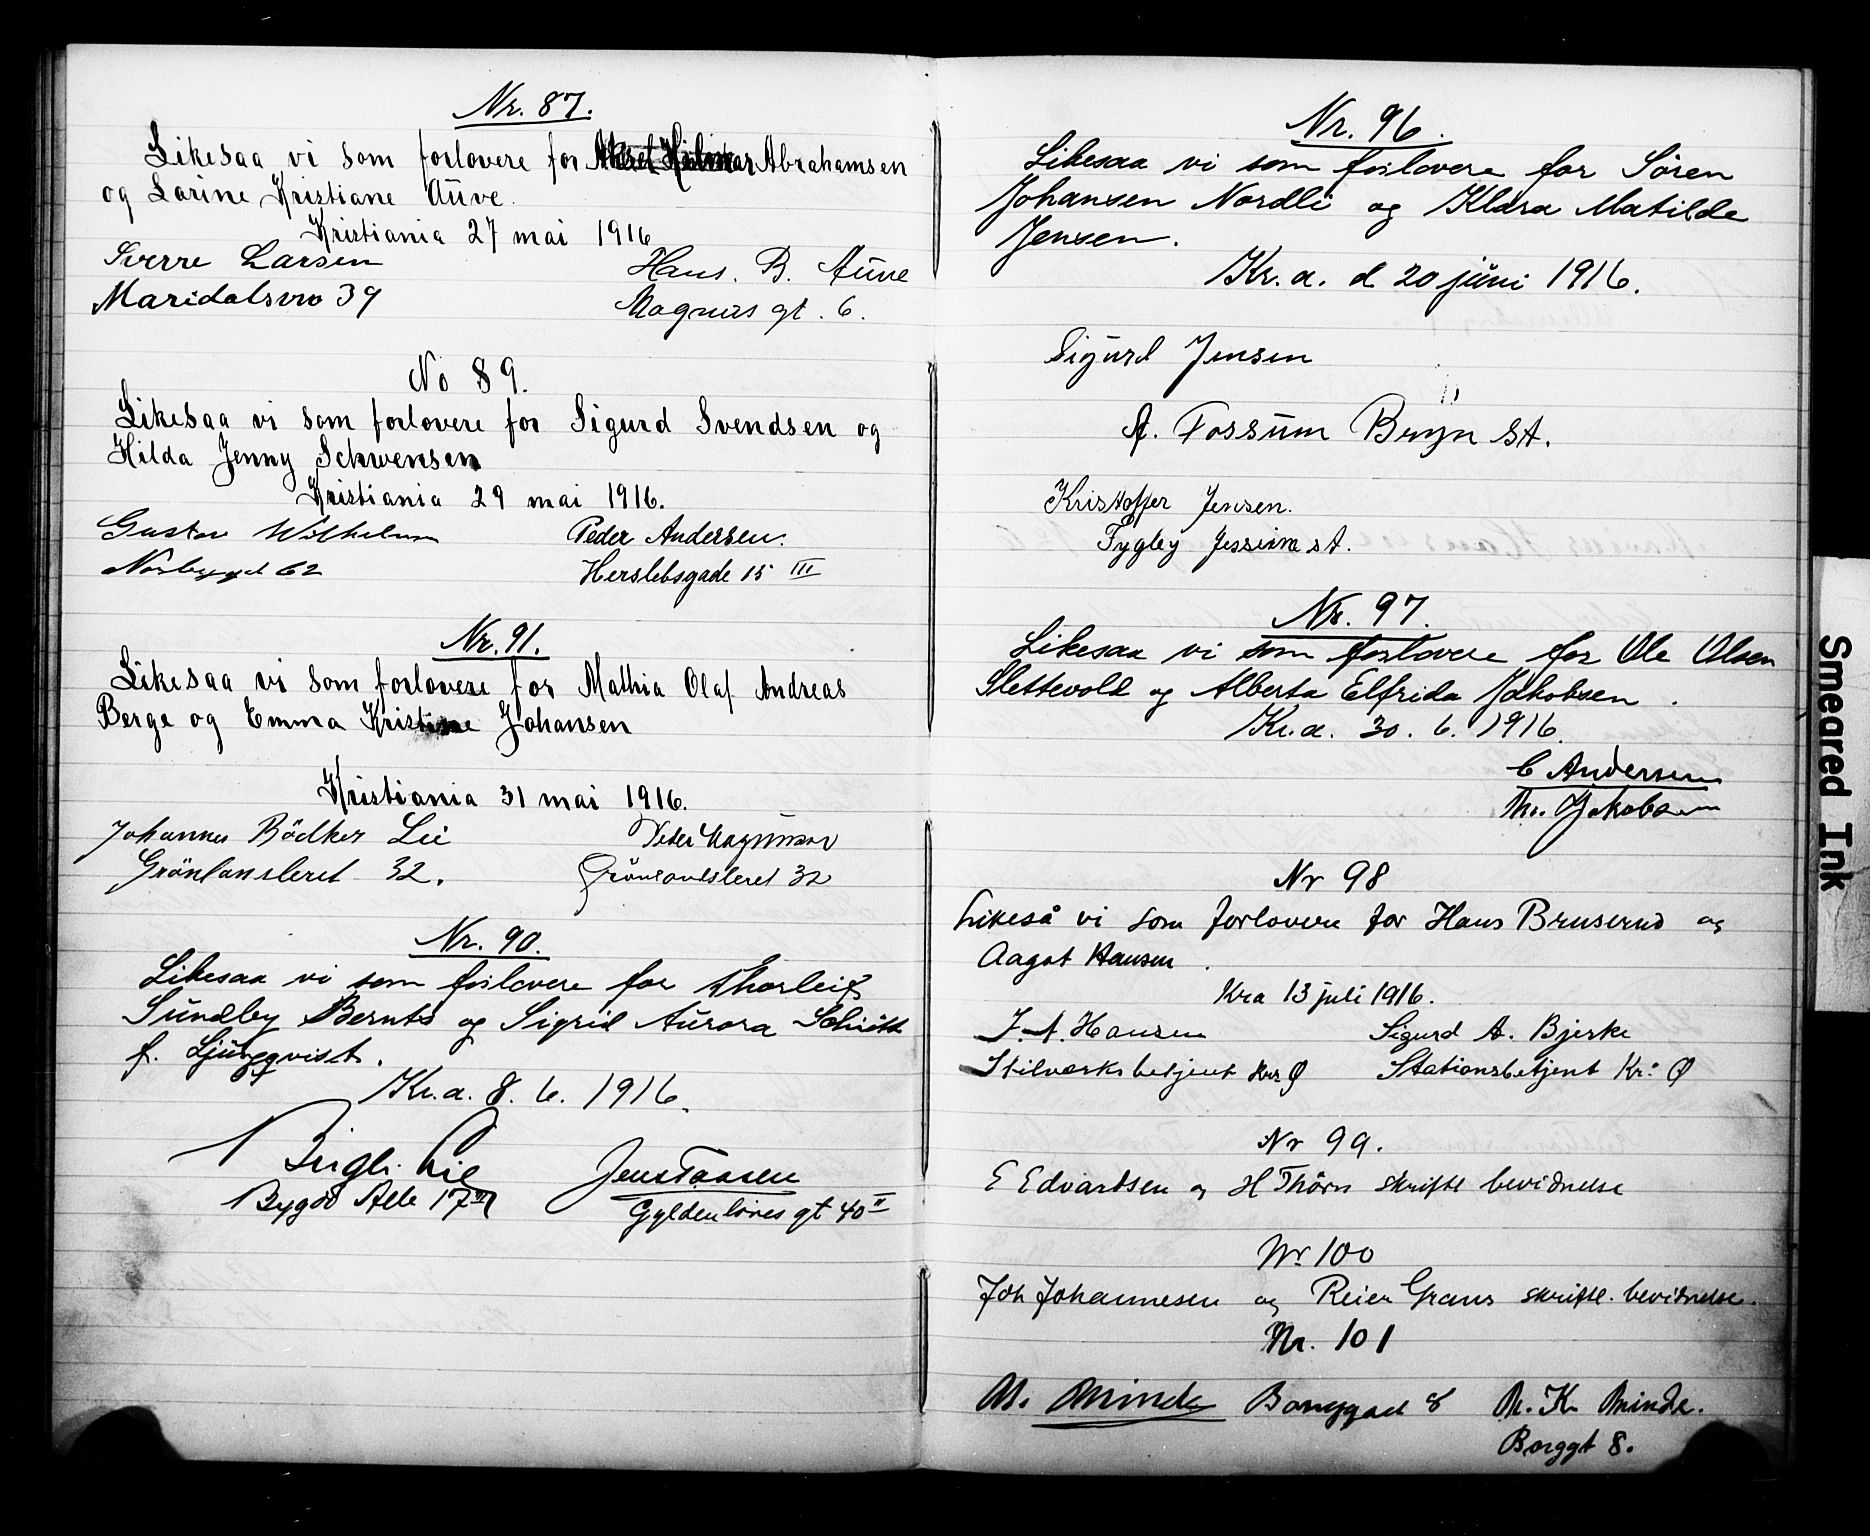 Nr. 87.
Likesaa vi som forlovere for Aksel Hilmar Abrahamsen
og Larine Kristiane Aüve.
Kristiania 27 mai 1916
Sverre Larsen
Maridalsvei 39
Hans. B. Aüve
Magnus gt. 6.
No 89.
Likesaa vi som forlovere for Sigurd Svendsen og
Hilda Jenny Schwensen
Kristiania 29 mai 1916.
Gustav Wilhelm
62
Peder Andersen.
Herslebsgade 15 III
Nr. 91.
Likesaa vi som forlovere for Mathia Olaf Andreas
Berge og Emma Kristine Johansen
Kristiania 31 mai 1916.
Johannes Bödker Lie
Grönlansleret 32.
Peder Magnussen
Grönlandsleret 32
Nr. 90.
Likesaa vi som forlovere for Thorleif
Sundby Bernts og Sigrid Aurora
f. Ljungqvist.
Kr.a. 8. 6. 1916.
Lie
Bygdö Alle 17
Jens Taasen
Gyldenlöves gt 40 II
Nr. 96.
Likesaa vi som forlovere for Sören
Johansen Nordli og Klara Matilde
Jensen.
Kr.a. d 20 juni 1916.
Sigurd Jensen
A. Fossum Bryn st.
Kristoffer Jensen.
Jessim st.
Nr. 97.
Likesaa vi som forlovere for Ole Olsen
Slettevold og Alberta Elfrida Jakobsen.
Kr.a. 30. 6. 1916.
C Andersen
Th. Jakobsen
Nr 98
Likeså vi som forlovere for Hans Bruserud og
Aagot Hansen.
Kra 13 juli 1916.
J. A. Hansen
Stilverksbetjent Kra Ø
Sigurd A. Bjerke
Stationsbetjent Kr: Ø
Nr 99.
E Edvardsen og H Thörn skriftl bevidnelse
Nr 100
Joh Johannesen og Reier Graus skriftl. bevidnelse.
Nr. 101
M. Minde Borggad 8
M. K. Minde.
Borggt 8.
Smeared Ink